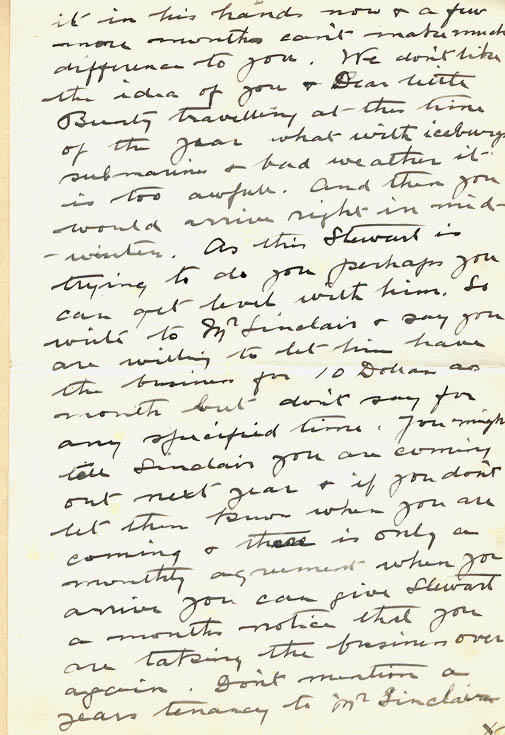 it in his hands now & a few
more months can't make much
difference to you. We don't like
the idea of you & Dear little
Busty travelling at this time
of the year what with iceburgs
submarines & bad weather it
is too awfull. And then you
would arrive right in mid-
-winter. As this Stewart is
trying to do you perhaps you
can get level with him. So
write to Mr Sinclair & say you
are willing to let him have
the business for 10 Dollars a
month but don't say for
any specified time. You might
tell Sinclair you are coming
out next year & if you don't
let them know when you are
coming & there is only a
monthly agreement when you
arrive you can give Stewart
a months notice that you
are taking the business over
again. Don't mention a
years tenancy to Mr Sinclair
X